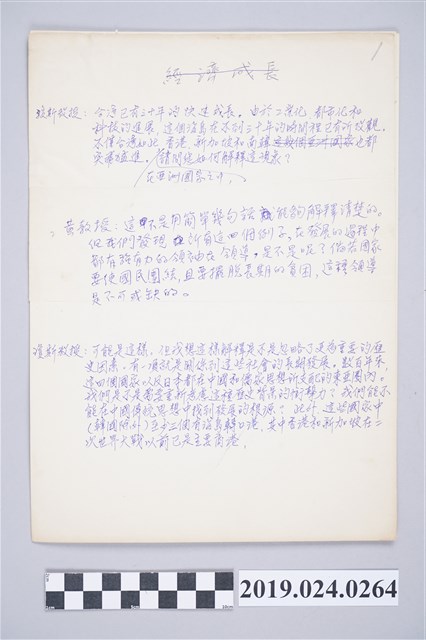 1
經濟成長
台灣已有三十年的快速成長。由於工業化、都市化和
科技的進展,這個海島在不到三十年的時間裡已有所改觀。
不僅台灣如此,香港、新加坡和南韓這幾個亞洲國家也都
突飛猛進。請問您如何解釋這現象?
在亞洲國家之中,
黃教授:這不是用簡單幾句話就能夠解釋清楚的。
但我們發現,所有這四個例子,在發展的過程中
都有強有力的領袖在領導,是不是呢?倘若國家
要使國民團結,且要擺脫長期的貧困,這種領導
是不可或缺的。
可能是這樣,但我想這樣解釋是不是忽略了更為重要的歷
史因素,有一項就是關係到這些社會的長期發展。數百年來,
這四個國家以及日本都在中國和儒家思想所支配的東亞圈內。
我們是不是需要重新考慮這種歷史背景的衝擊力?我們能不
能在中國傳統思想中找到發展的根源?此外,這些國家中
(韓國除外)至少三個有海島轉口港,其中香港和新加坡在二
次世界大戰以前已是主要商港。
2019.024.0264